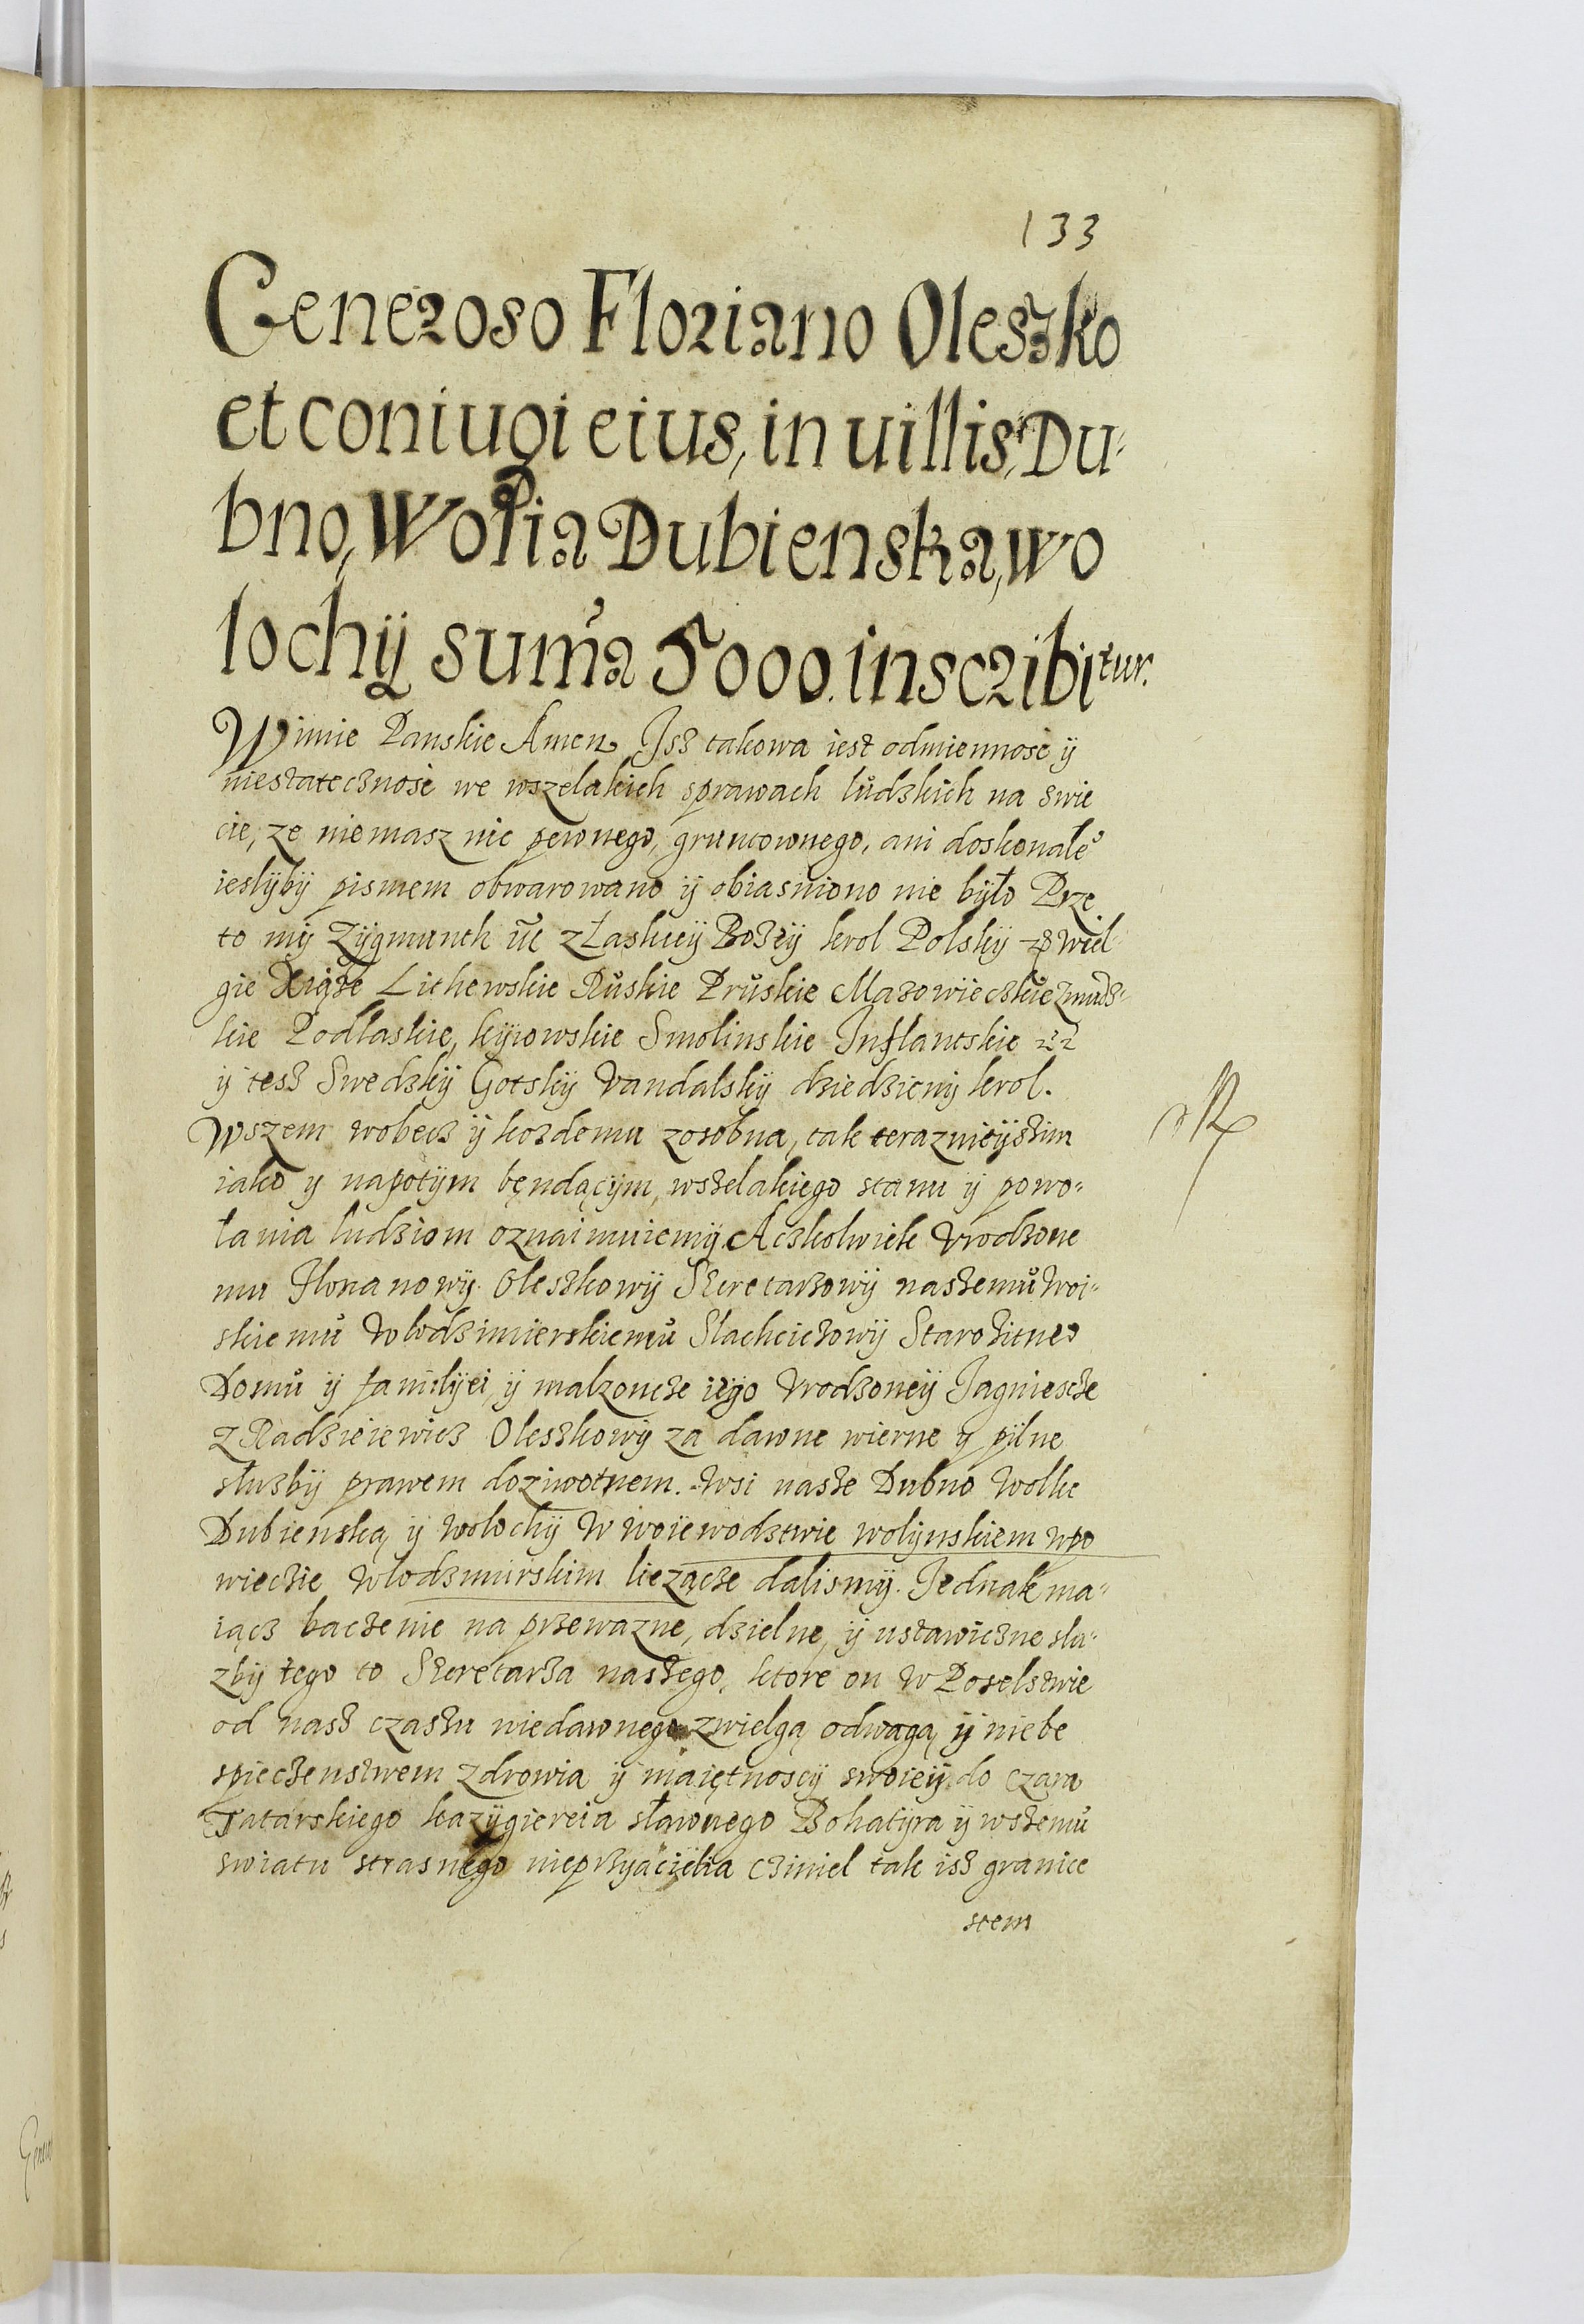 133
Generoso Floriano Oleszko
et coniugi eius, in uillis, Du-
bno, Wolia Dubienska, wo
lochÿ sum̃a 5000. inscribitur.
W imie Panskie Amen. Isz takowa iest odmiennosć ÿ
niestatecznosć we wszelakich sprawach ludzkich na swie
cie, ze niemasz nic pewnego, gruntownego, ani doskonałe°
ieslÿbÿ pismem obwarowano ÿ obiasniono nie bÿło Prze
to mÿ Zÿgmunth z Łaskieÿ Bożeÿ krol Polskÿ Wiel-
gie Xiąże Lithewskie Ruskie Pruskie Mazowieczkie Zmudz-
kie Podlaskie, kÿiowskie Smolinskie Inflantskie
ÿ tesz Swedzkÿ Gotskÿ Vandalskÿ dziedzicnÿ krol.
Wszem wobecz ÿ kozdemu zosobna, tak teraznieÿszim
iako y napotÿm będącÿm, wszelakiego stanu ÿ powo-
łania ludziom oznaimuiemÿ. Aczkolwiek Vrodzone
mu Florianowÿ Oleszkowÿ Sekretarzowÿ naszemu Woi-
skiemu Wlodzimierskiemu Slachcicżowÿ Starożitne°
Domu ÿ familÿei, ÿ malzoncże iego Vrodzoneÿ Jagniescże
z Radzieiewicz Oleszkowÿ za dawne wierne y pÿlne
słuzbÿ prawem doziwotnem. Wsi nasze Dubno Wolke
Dubienską ÿ Wolochÿ w Woiewodztwie wolÿnskiem wpo
wieczie Wlodzimirskim liezącże dalismÿ. Jednak ma-
iącz baczenie na przewazne, dzielne, ÿ ustawiczne slu-
zbÿ tego to Sekretarza naszego, ktore on w Poselstwie
od nasz czaszu niedawnego zwielgą odwagą ÿ niebe
spieczenstwem zdrowia ÿ maiętnoscÿ swoieÿ do Czara
Tatarskiego kazÿgiereia sławnego Bohatÿra ÿ wszemu
swiatu strasnego nieprzÿaciela cziniel tak isz granice
stem